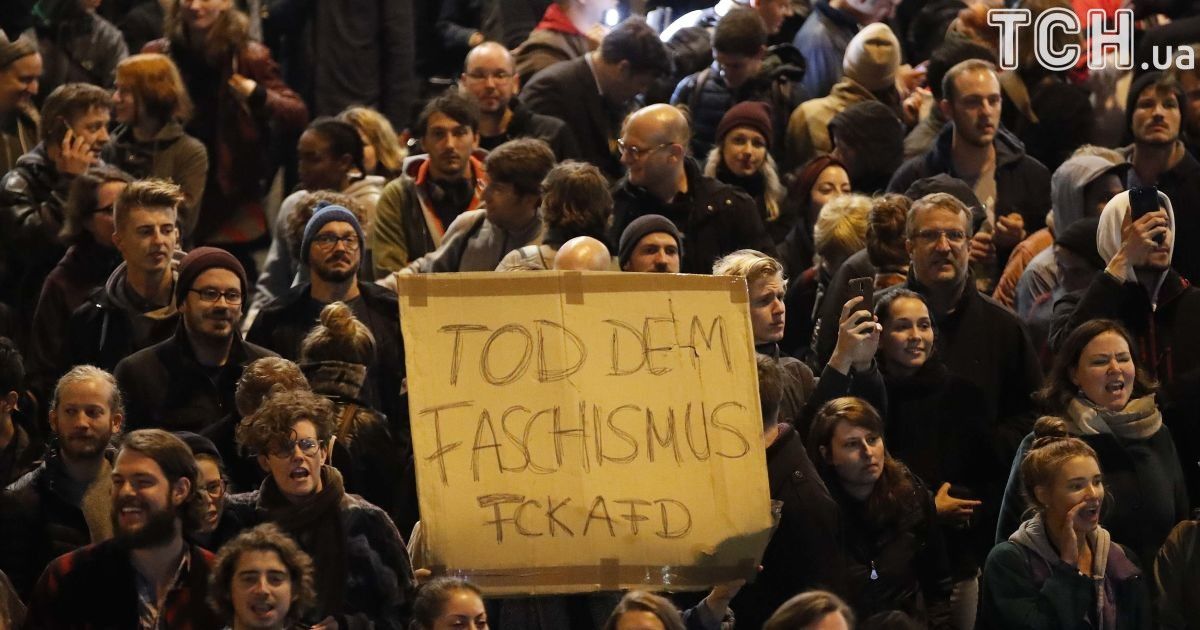 ТСН.ua
TOD DEM
FASCHISMUS
FCKAFD